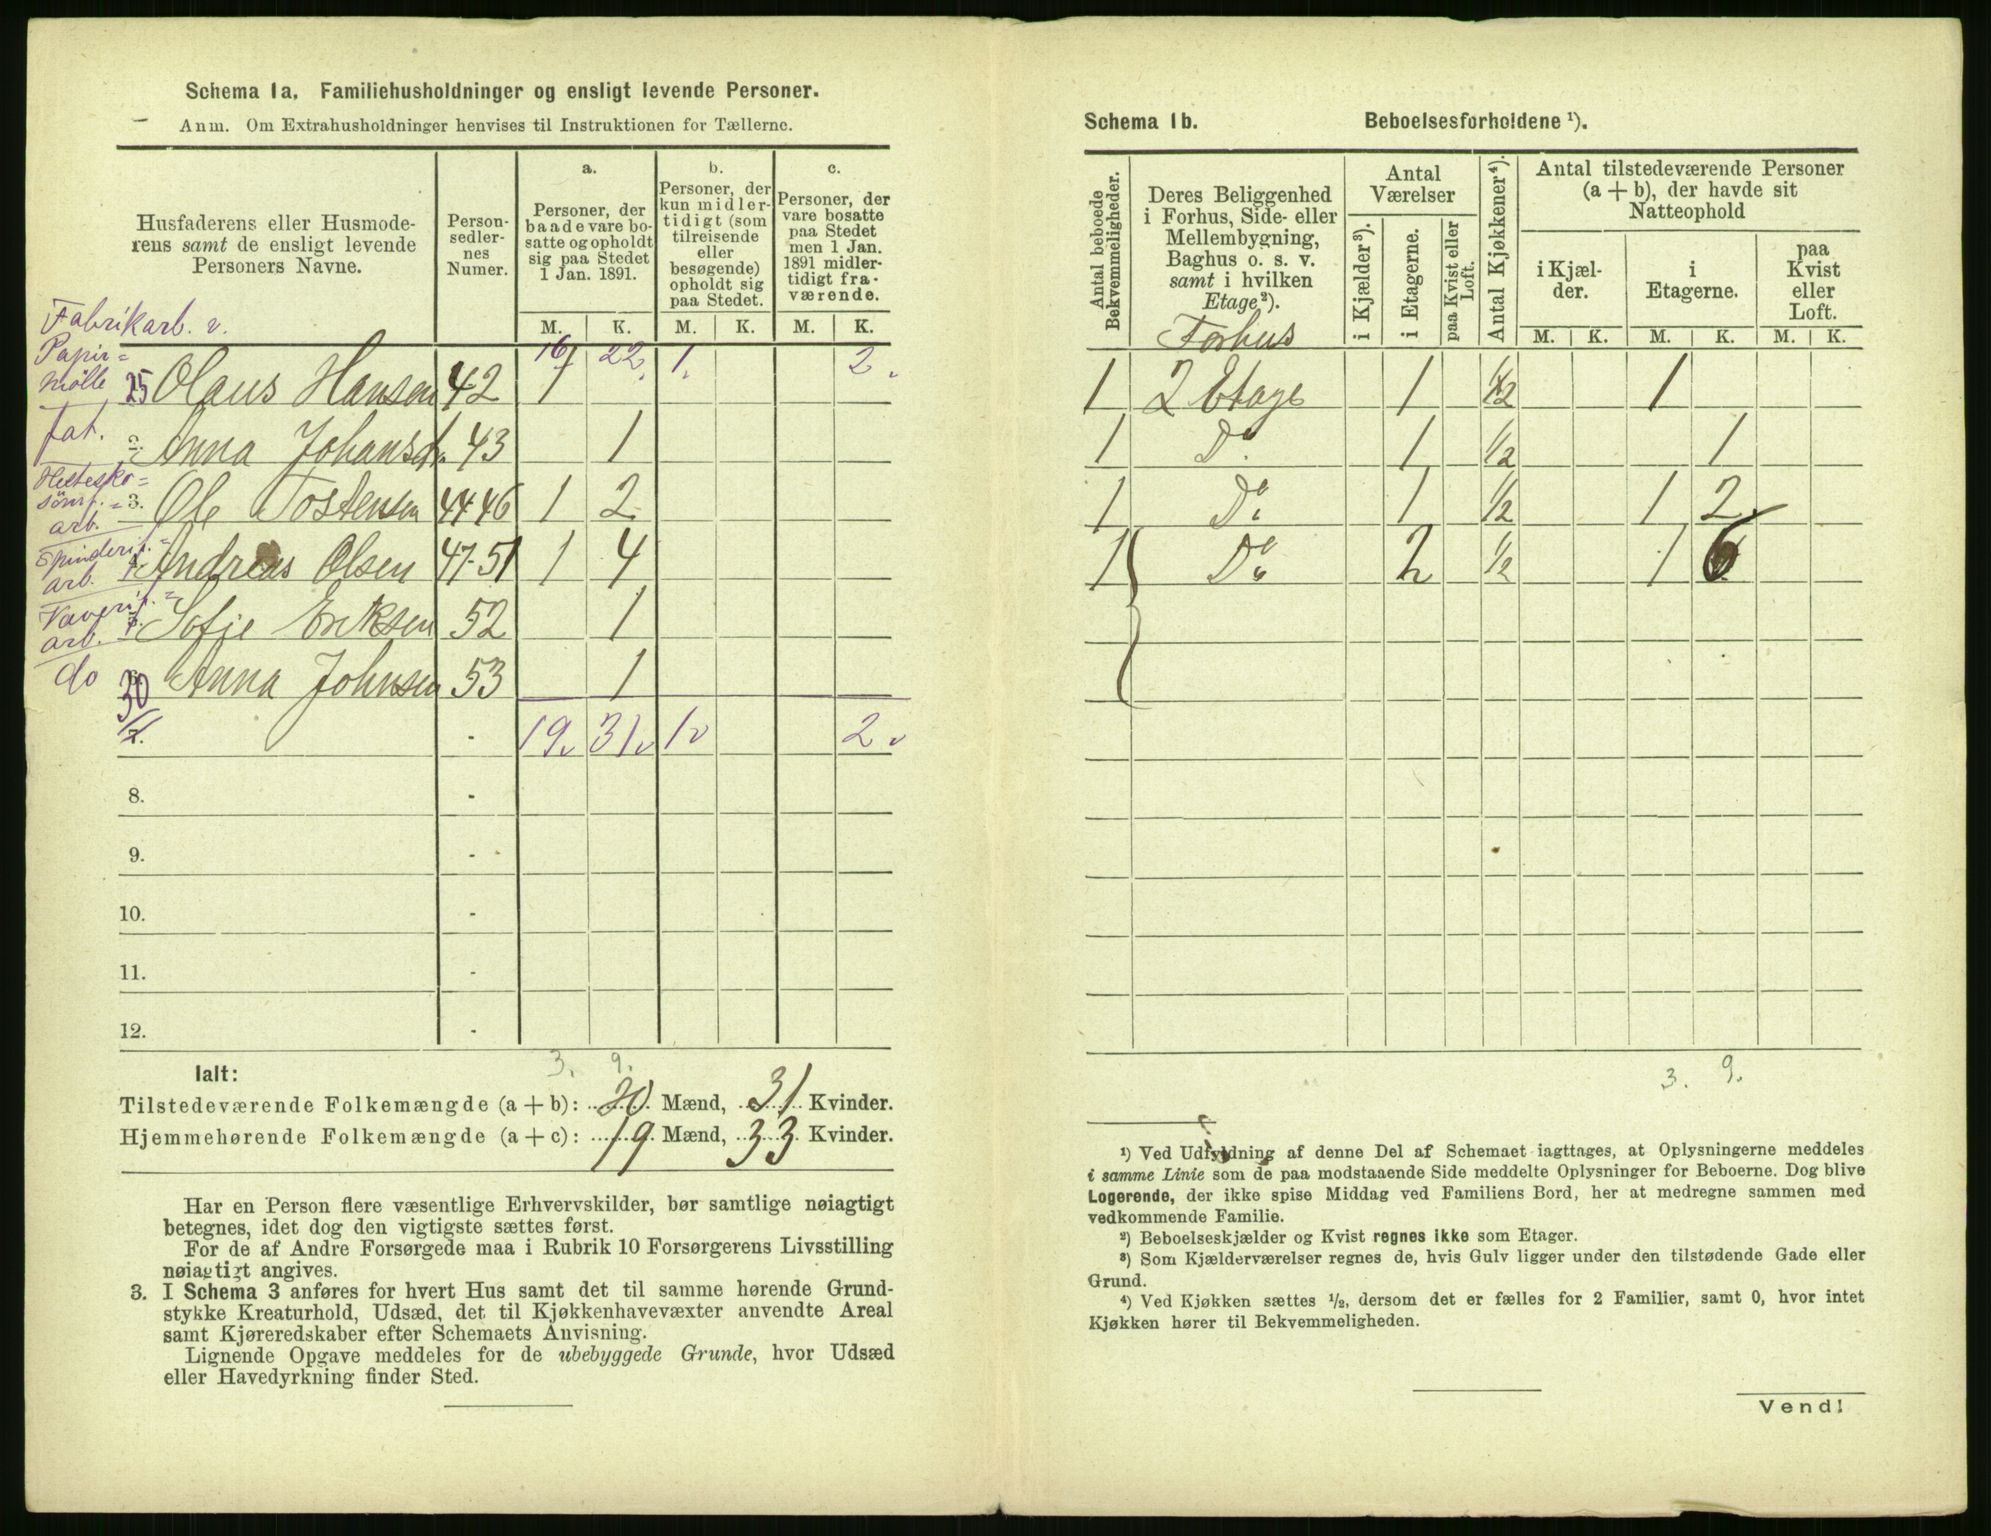 Schema 1a. Familiehusholdninger og ensligt levende Personer.
Anm. Om Extrahusholdninger henvises til Instruktionen for Tællerne.
Husfaderens eller Husmoderens samt de ensligt levende Personers Navne.
Personsedlernes Numer.
a. Personer, der baade vare bosatte og opholdt sig paa Stedet 1 Jan. 1891.
b. Personer, der kun midlertidigt (som tilreisende eller besøgende) opholdt sig paa Stedet.
c. Personer, der vare bosatte paa Stedet men 1 Jan. 1891 midlertidigt fraværende.
M. K. M. K. M. K.
16 22. 1. 2.
Fabrikarb. v. Papirmølle 25 Olaus Hansen 42 1
Fat. 2. Anna Johansd. 43 1
Hestesko=sömf.=arb. 3. Ole Tostensen 44 46 1 2
Spinderi=arb. 4. Andreas Olsen 47-51 1 4
Vaveri=arb. 5. Sofie Eriksen 52 1
do 30 Anna Johnsen 53 1
7. - 19. 31. 1. 2.
8. -
9. -
10. -
11. -
12. -
3. 9.
Ialt:
Tilstedeværende Folkemængde (a + b): 20 Mænd, 31 Kvinder.
Hjemmehørende Folkemængde (a + c): 19 Mænd, 33 Kvinder.
Har en Person flere væsentlige Erhvervskilder, bør samtlige nøiagtigt
betegnes, idet dog den vigtigste sættes først.
For de af Andre Forsørgede maa i Rubrik 10 Forsørgerens Livsstilling
nøiagtigt angives.
3. I Schema 3 anføres for hvert Hus samt det til samme hørende Grund-
stykke Kreaturhold, Udsæd, det til Kjøkkenhavevæxter anvendte Areal
samt Kjøreredskaber efter Schemaets Anvisning.
Lignende Opgave meddeles for de ubebyggede Grunde, hvor Udsæd
eller Havedyrkning finder Sted.
Schema 1b. Beboelsesforholdene ¹).
Antal beboede Bekvemmeligheder.
Deres Beliggenhed i Forhus, Side- eller Mellembygning, Baghus o. s. v. samt i hvilken Etage²).
Antal Værelser
i Kjælder³).
i Etagerne.
paa Kvist eller Loft.
Antal Kjøkkener⁴).
Antal tilstedeværende Personer (a + b), der havde sit Natteophold
i Kjælder.
i Etagerne.
paa Kvist eller Loft.
M. K. M. K. M. K.
Forhus
1 2 Etage 1 1/2 1
1 Do. 1 1/2 1
1 Do. 1 1/2 1 2
1 Do. 2 1/2 1 6
3. 9.
¹) Ved Udfyldning af denne Del af Schemaet iagttages, at Oplysningerne meddeles
i samme Linie som de paa modstaaende Side meddelte Oplysninger for Beboerne. Dog blive
Logerende, der ikke spise Middag ved Familiens Bord, her at medregne sammen med
vedkommende Familie.
²) Beboelseskjælder og Kvist regnes ikke som Etager.
³) Som Kjælderværelser regnes de, hvis Gulv ligger under den tilstødende Gade eller
Grund.
⁴) Ved Kjøkken sættes ¹/₂, dersom det er fælles for 2 Familier, samt 0, hvor intet
Kjøkken hører til Bekvemmeligheden.
Vend!